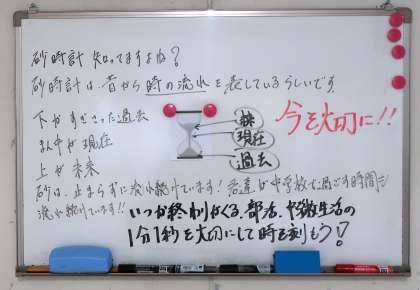 砂時計 知ってますよね？
砂時計は、昔から時の流れを表しているらしいです
下がすぎさった過去
まん中が現在
上が未来
現在
過去
今を大切に!!
砂は、止まらずに流れ続けています！君達が中学校で過ごす時間も
流れ続けています!!
いつか終わりがくる、部活、中学生活の
1分1秒を大切にして時を刻もう！